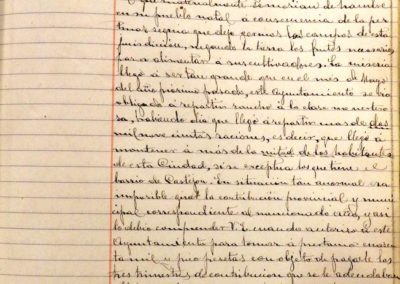 que materialmente se morían de hambre
en su pueblo natal á consecuencia de la per-
tinaz sequia que dejo yermos los campos de esta
jurisdiccion, negando la tierra los frutos necesarios
para alimentar á sus cultivadores. La miseria
llegó á ser tan grande que en el mes de Mayo
del año próximo pasado, este Ayuntamiento se vio
obligado á repartir rancho á la clase menestero-
sa, habiendo dia que llegó á repartir mas de dos
mil nuevecientas raciones, es decir, que llegó á
mantener á más de la mitad de los habitantes
de esta Ciudad, si se exceptua los que tiene el
barrio de Castejon. En situacion tan anormal era
imposible que la contribución provincial y muni-
cipal correspondiente al mencionado año, y asi
lo debio comprender V.E. cuando autorizó á este
Ayuntamiento para tomar á prestamo cuaren-
ta mil y pico pesetas con objeto de pagar los
tres trimestres de contribucion que se le adeudaban